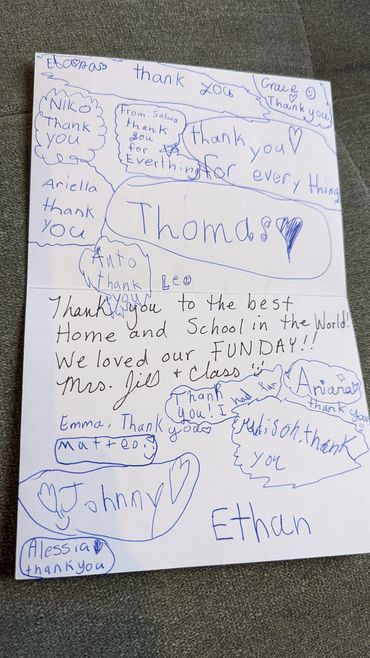 thank you
Grace
Thank you
Niko
Thank
you
From: Salwa
thank
you
for
Everthing
thank
you
for every thing
Ariella
thank
you
Thomas
Anto
thank
you
Leo
Thank you to the best
Home and School in the World!
We loved our FUNDAY!!
Mrs. Jill + Class
Thank
you! I
had fun
Ariana
thank you
Emma, Thank you
matteo
Madison, thank
you
Johnny
Ethan
Alessia
thank you